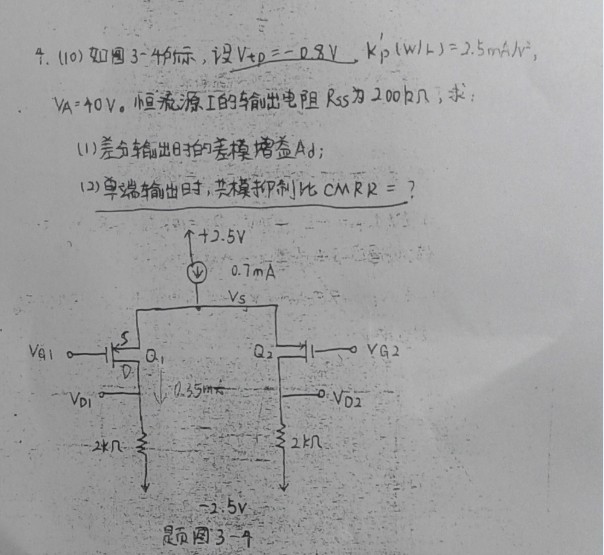 4. (10) 如图3-4所示, 设Vtp=-0.8V, k'p(W/L)=2.5mA/V²,
VA=40V。恒流源I的输出电阻Rss为200kΩ, 求:
(1)差分输出时的差模增益Ad;
(2)单端输出时, 共模抑制比CMRR=?
+2.5V
0.7mA
Vs
VG1
S
Q1
Q2
VG2
D
VD1
0.35mA
VD2
2kΩ
2kΩ
-2.5V
题图3-4